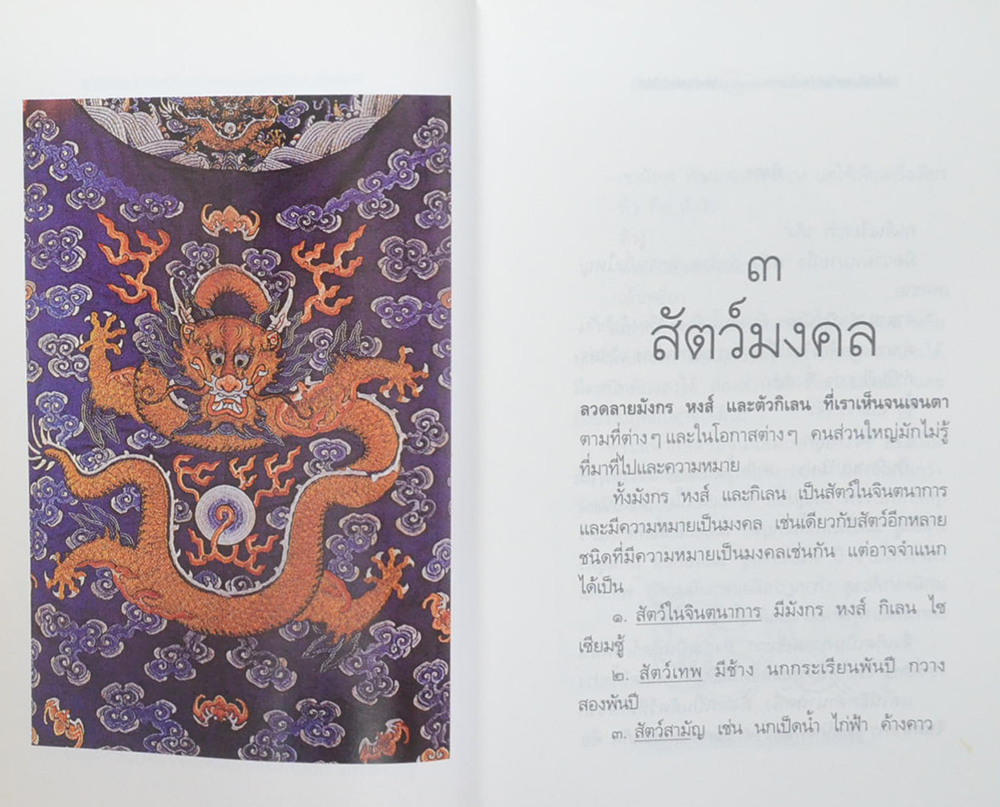 ๓
สัตว์มงคล
ลวดลายมังกร หงส์ และตัวกิเลน ที่เราเห็นจนเจนตา
ตามที่ต่างๆ และในโอกาสต่างๆ คนส่วนใหญ่มักไม่รู้
ที่มาที่ไปและความหมาย
ทั้งมังกร หงส์ และกิเลน เป็นสัตว์ในจินตนาการ
และมีความหมายเป็นมงคล เช่นเดียวกับสัตว์อีกหลาย
ชนิดที่มีความหมายเป็นมงคลเช่นกัน แต่อาจจำแนก
ได้เป็น
๑. สัตว์ในจินตนาการ มีมังกร หงส์ กิเลน ไซ
เซียมซู้
๒. สัตว์เทพ มีช้าง นกกระเรียนพันปี กวาง
สองพันปี
๓. สัตว์สามัญ เช่น นกเป็ดน้ำ ไก่ฟ้า ค้างคาว